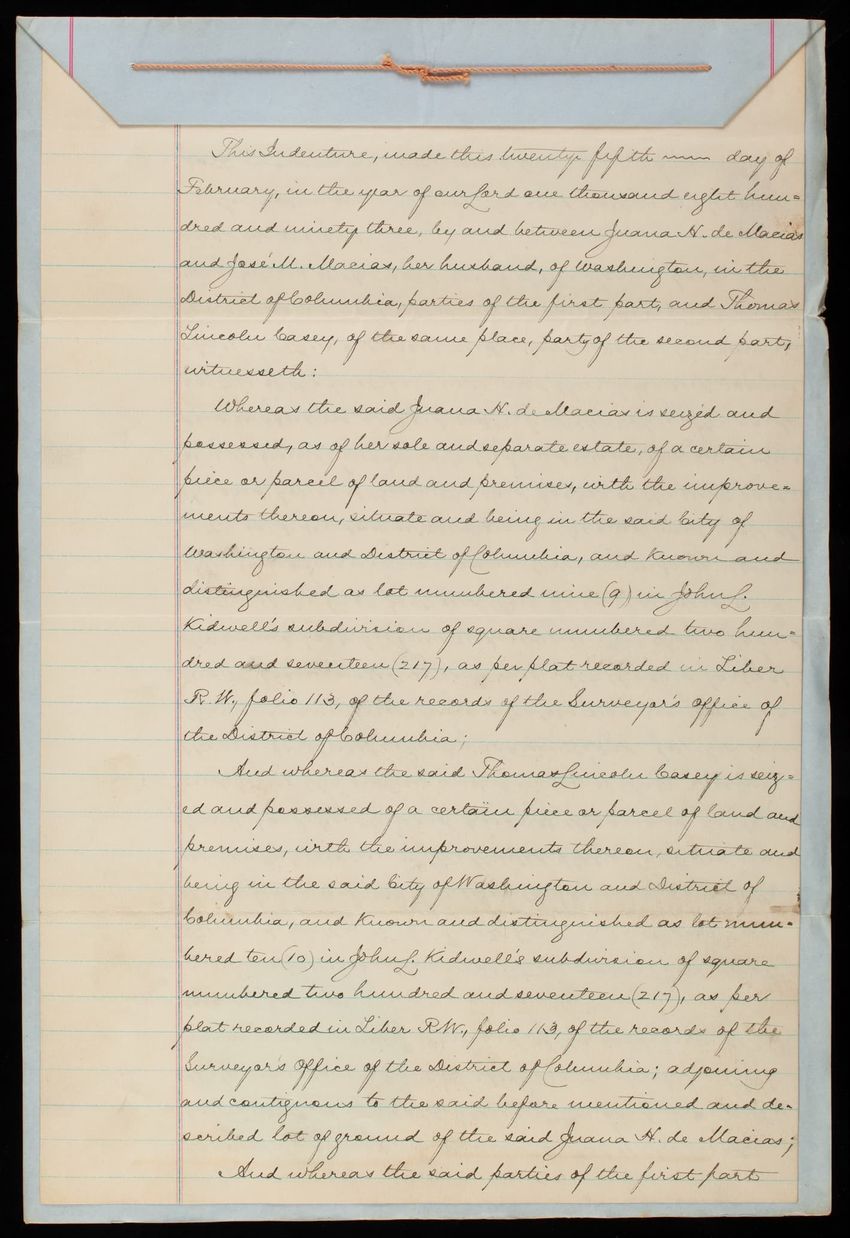 This Indenture, made this twenty fifth ~~~ day of
February, in the year of our Lord one thousand eight hun=
dred and ninety three, by and between Juana N. de Macias
and José M. Macias, her husband, of Washington, in the
District of Columbia, parties of the first part, and Thomas
Lincoln Casey, of the same place, party of the second part,
witnesseth:
Whereas the said Juana N. de Macias is seized and
possessed, as of her sole and separate estate, of a certain
piece or parcel of land and premises, with the improve=
ments thereon, situate and being in the said City of
Washington and District of Columbia, and known and
distinguished as lot numbered nine (9) in John L.
Kidwell's subdivision of square numbered two hun=
dred and seventeen (217), as per plat recorded in Liber
R.W., folio 113, of the records of the Surveyor's Office of
the District of Columbia;
And whereas the said Thomas Lincoln Casey is seiz=
ed and possessed of a certain piece or parcel of land and
premises, with the improvements thereon, situate and
being in the said City of Washington and District of
Columbia, and known and distinguished as lot num=
bered ten (10) in John L. Kidwell's subdivision of square
numbered two hundred and seventeen (217), as per
plat recorded in Liber R.W., folio 113, of the records of the
Surveyor's Office of the District of Columbia; adjoining
and contiguous to the said before mentioned and de=
scribed lot of ground of the said Juana N. de Macias;
And whereas the said parties of the first part